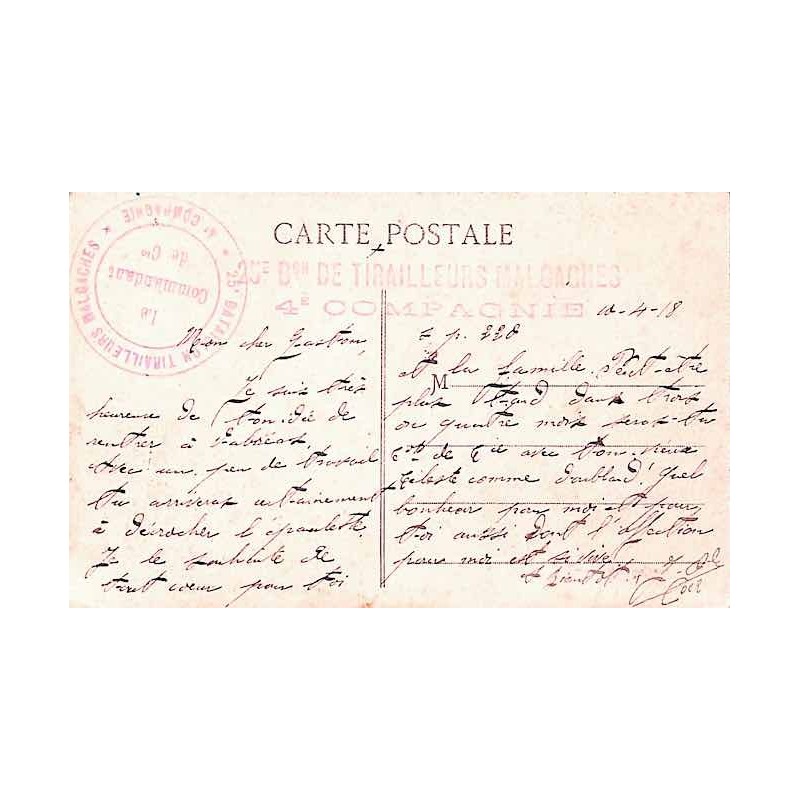 CARTE POSTALE
25E BON DE TIRAILLEURS MALGACHES
4E COMPAGNIE
25E BATAILLON TIRAILLEURS MALGACHES
4E COMPAGNIE
Le
Commandant
de Cie
10-4-18
s. p. 228
Mon cher Gaston,
Je suis très
heureuse de ton idée de
rentrer à
Avec un peu de travail
tu arriveras certainement
à décrocher l'épaulette.
Je le souhaite de
tout cœur pour toi
M
et la famille. Peut-être
plus tard dans trois
ou quatre mois seras-tu
de Cie avec ton vieux
Céleste comme Quel
bonheur pour moi et pour
toi aussi dont l'affection
pour moi est si vive.
à bientôt